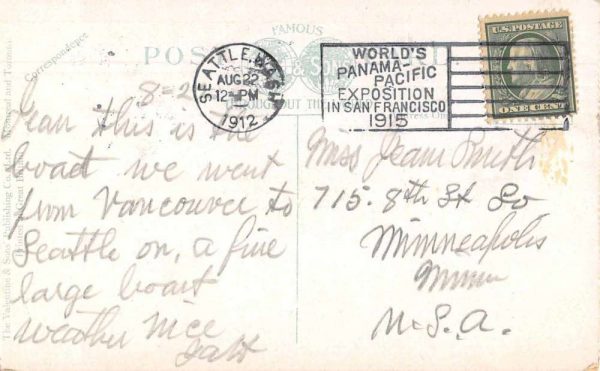 FAMOUS
POST
Correspondence
SEATTLE, WASH.
AUG 22
12-PM
1912
WORLD'S
PANAMA-
PACIFIC
EXPOSITION
IN SAN FRANCISCO
1915
U.S. POSTAGE
ONE CENT
8-2
Jean this is the
boat we went
from Vancouver to
Seattle on, a fine
large boat
weather nice
Miss Jean Smith
715. 8th St So
Minneapolis
Minn
U.S.A.
The Valentine & Sons' Publishing Co., Ltd., Montreal and Toronto
Printed in Great Britain